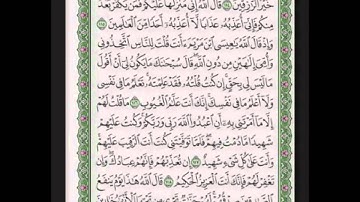 خَيْرُ الرَّازِقِينَ ﴿١١٤﴾ قَالَ اللَّهُ إِنِّي مُنَزِّلُهَا عَلَيْكُمْ فَمَن يَكْفُرْ بَعْدُ
مِنكُمْ فَإِنِّي أُعَذِّبُهُ عَذَابًا لَّا أُعَذِّبُهُ أَحَدًا مِّنَ الْعَالَمِينَ ﴿١١٥﴾
وَإِذْ قَالَ اللَّهُ يَا عِيسَى ابْنَ مَرْيَمَ أَأَنتَ قُلْتَ لِلنَّاسِ اتَّخِذُونِي
وَأُمِّيَ إِلَٰهَيْنِ مِن دُونِ اللَّهِ قَالَ سُبْحَانَكَ مَا يَكُونُ لِي أَنْ أَقُولَ
مَا لَيْسَ لِي بِحَقٍّ إِن كُنتُ قُلْتُهُ فَقَدْ عَلِمْتَهُ تَعْلَمُ مَا فِي نَفْسِي
وَلَا أَعْلَمُ مَا فِي نَفْسِكَ إِنَّكَ أَنتَ عَلَّامُ الْغُيُوبِ ﴿١١٦﴾ مَا قُلْتُ لَهُمْ
إِلَّا مَا أَمَرْتَنِي بِهِ أَنِ اعْبُدُوا اللَّهَ رَبِّي وَرَبَّكُمْ وَكُنتُ عَلَيْهِمْ
شَهِيدًا مَّا دُمْتُ فِيهِمْ فَلَمَّا تَوَفَّيْتَنِي كُنتَ أَنتَ الرَّقِيبَ عَلَيْهِمْ
وَأَنتَ عَلَىٰ كُلِّ شَيْءٍ شَهِيدٌ ﴿١١٧﴾ إِن تُعَذِّبْهُمْ فَإِنَّهُمْ عِبَادُكَ وَإِن
تَغْفِرْ لَهُمْ فَإِنَّكَ أَنتَ الْعَزِيزُ الْحَكِيمُ ﴿١١٨﴾ قَالَ اللَّهُ هَٰذَا يَوْمُ يَنفَعُ